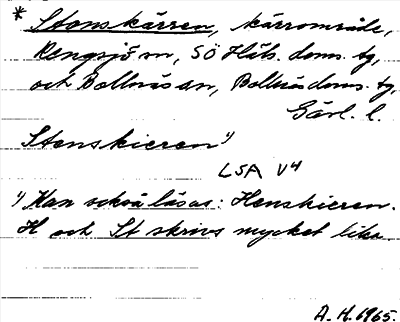 * Stenskärren, kärrområde,
Rengsjö sn, SÖ Häls. doms. tg,
och Bollnäs sn, Bollnäs doms. tg,
Gävl. l.
Stenskieren ¹)
LSA V4
¹) Kan också läsas: Henskieren.
H och St skrivs mycket lika.
A. H. 1965.